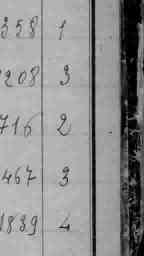 358 1
208 3
716 2
467 3
1839 4